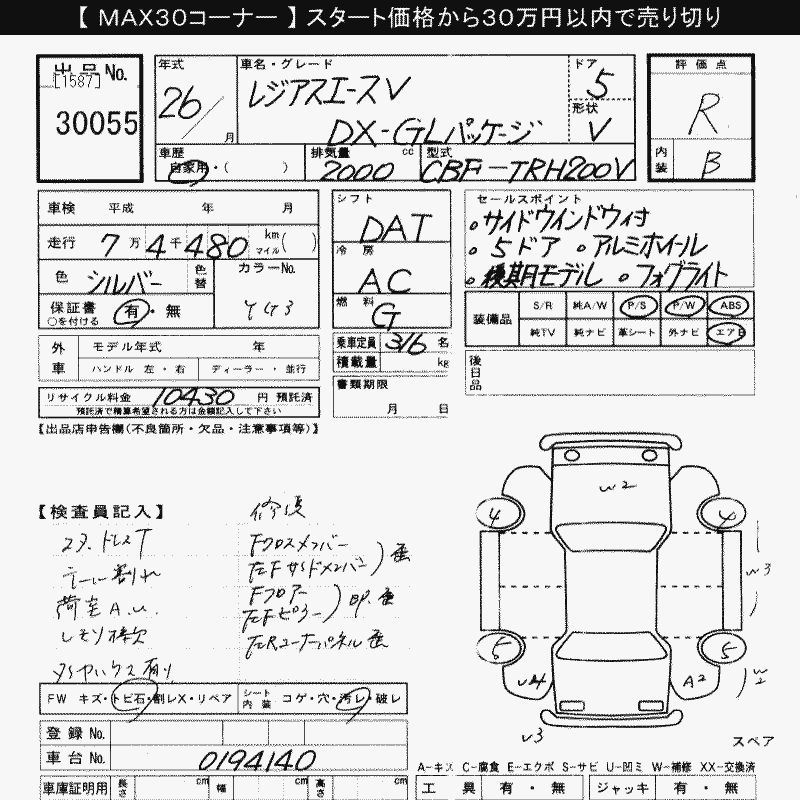 【 MAX30コーナー 】 スタート価格から30万円以内で売り切り
出品No.
[1587]
30055
年式
26
月
車名・グレード
レジアスエースV
DX-GLパッケージ
ドア
5
形状
V
評価点
R
内装
B
車歴
自家用・( )
排気量
2000 cc
型式
CBF-TRH200V
車検 平成 年 月
走行 7万4千480 km マイル( )
色 シルバー 色替
カラーNo.
保証書 有・無
○を付ける
シフト
DAT
冷房
AC
燃料
G
セールスポイント
・サイドウインドウィ付
・5ドア ・アルミホイール
・後期モデル ・フォグライト
装備品
S/R 純A/W P/S P/W ABS
純TV 純ナビ 革シート 外ナビ エアB
外車
モデル年式 年
ハンドル 左・右 ディーラー・並行
乗車定員 3/6 名
積載量 kg
後日品
リサイクル料金 10430 円 預託済
預託済で精算希望される方は金額記入して下さい
書類期限
月 日
【出品店申告欄(不良箇所・欠品・注意事項等)】
【検査員記入】
修復
Fクロスメンバー
左右Fサイドメンバー 歪
Fフロアー
荷室A.U.
FW キズ・トビ石・割レX・リペア
シート内装 コゲ・穴・汚レ・破レ
登録No.
車台No. 0194140
車庫証明用 長さ cm 幅 cm 高さ cm
W2
4
4
W3
5
5
U4
A2
W2
U3
スペア
A-キズ C-腐食 E-エクボ S-サビ U-凹ミ W-補修 XX-交換済
工具 有・無 ジャッキ 有・無